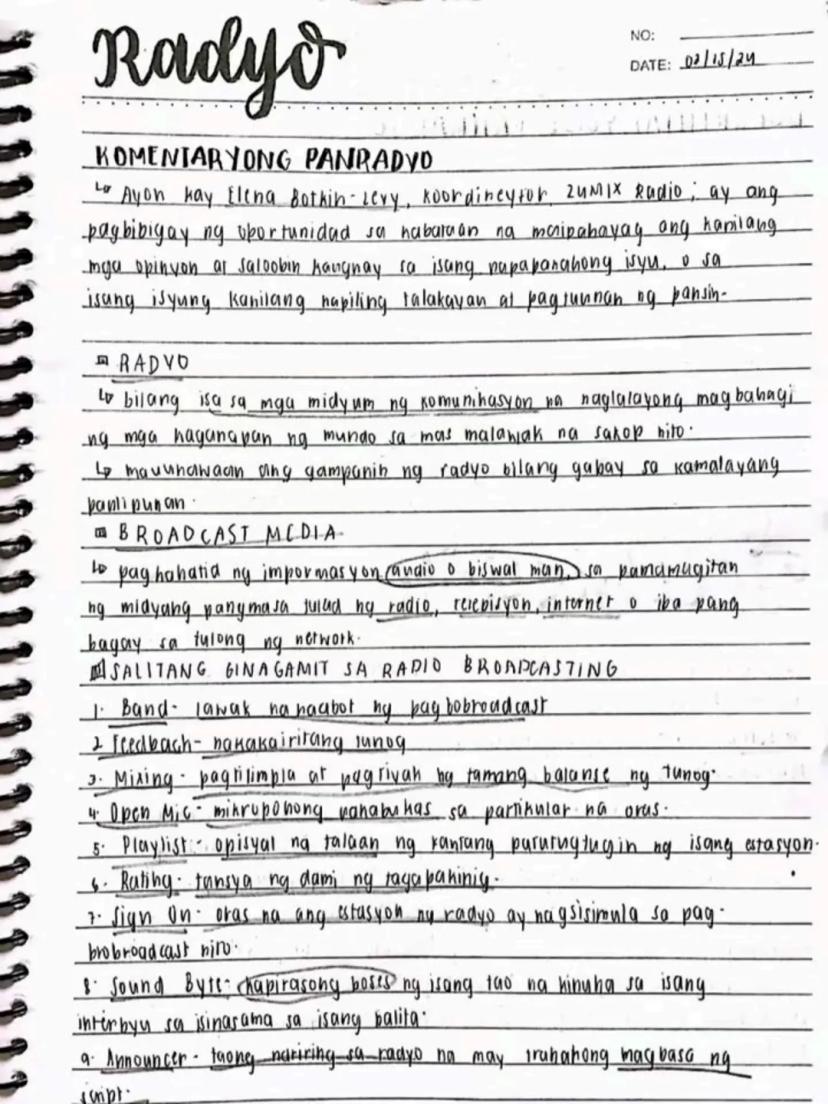 Radyo
NO:
DATE: 02/15/24
KOMENTARYONG PANRADYO
↳ Ayon kay Elena Botkin-Levy, Koordineytor, ZUMIX Radio; ay ang
pagbibigay ng oportunidad sa kabataan na maipahayag ang kanilang
mga opinyon at saloobin kaugnay sa isang napapanahong isyu, o sa
isang isyung kanilang napiling talakayan at pagtuunan ng pansin.
RADYO
↳ bilang isa sa mga midyum ng komunikasyon na naglalayong magbahagi
ng mga kaganapan ng mundo sa mas malawak na sakop nito.
↳ mauunawaan ang gampanin ng radyo bilang gabay sa kamalayang
panlipunan.
BROADCAST MEDIA
↳ paghahatid ng impormasyon audio o biswal man, sa pamamagitan
ng midyang pangmasa tulad ng radio, telebisyon, internet o iba pang
bagay sa tulong ng network.
SALITANG GINAGAMIT SA RADIO BROADCASTING
1. Band- lawak na naabot ng pagbobroadcast
2. Feedback- nakakairitang tunog
3. Mixing- pagtitimpla at pagtiyak ng tamang balanse ng tunog.
4. Open Mic- mikropohong nakabukas sa partikular na oras.
5. Playlist- opisyal na talaan ng kantang patutugtugin ng isang estasyon.
6. Rating- tansya ng dami ng tagapakinig.
7. Sign On- oras na ang estasyon ng radyo ay nagsisimula sa pag-
brobroadcast nito.
8. Sound Byte- kapirasong boses ng isang tao na kinuha sa isang
interbyu sa isinasama sa isang balita.
9. Announcer- taong naririnig sa radyo na may trabahong magbasa ng
script.